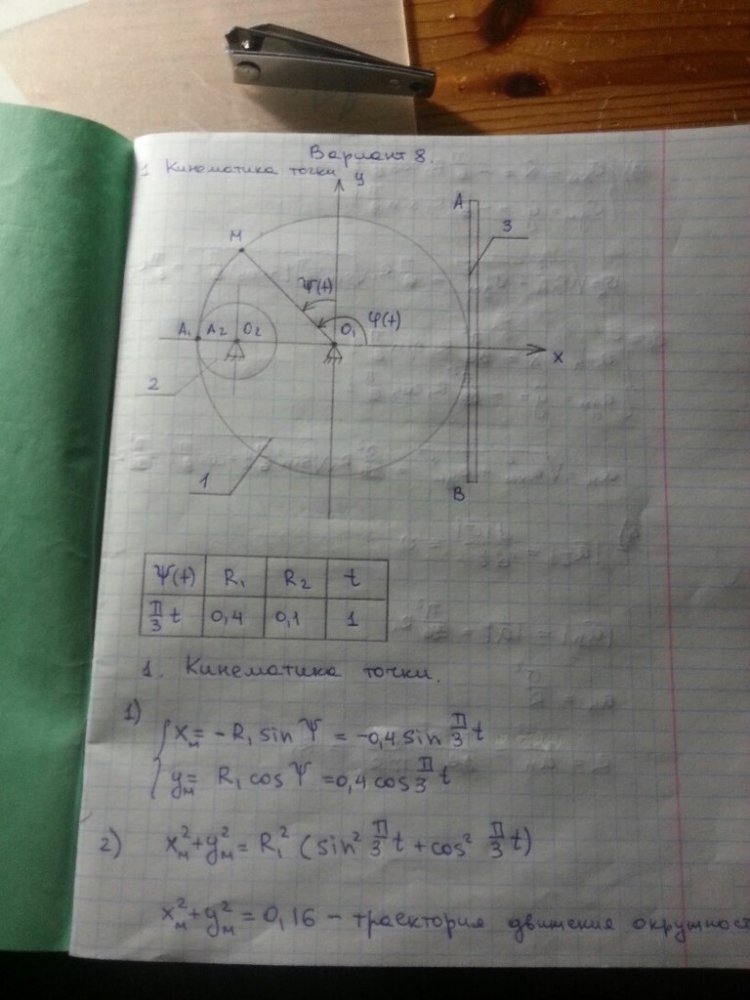 Вариант 8.
1 Кинематика точки
y
A
3
M
Ψ(t)
φ(t)
A₁ A₂ O₂ O₁
x
2
1
B
Ψ(t) R₁ R₂ t
π/3 t 0,4 0,1 1
1. Кинематика точки.
1) { xₘ = - R₁ sin Ψ = -0,4 sin π/3 t
yₘ = R₁ cos Ψ = 0,4 cos π/3 t
2) xₘ² + yₘ² = R₁² (sin² π/3 t + cos² π/3 t)
xₘ² + yₘ² = 0,16 - траектория движения окружност